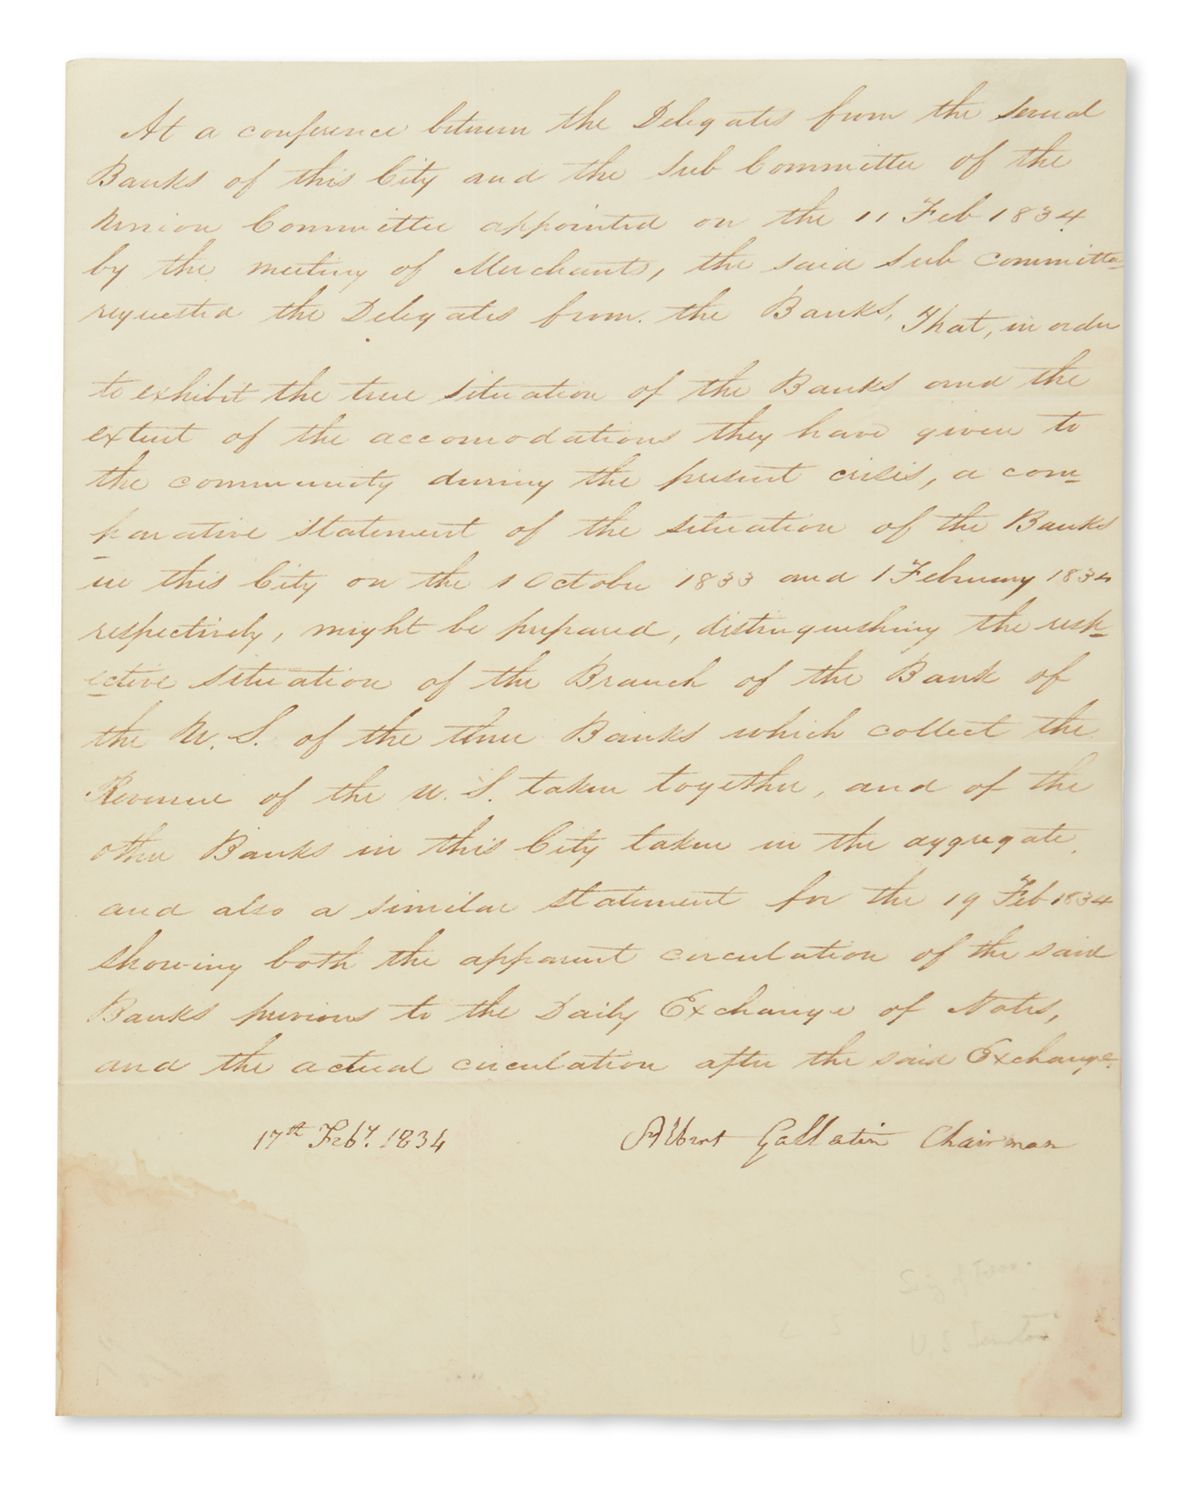 At a conference between the Delegates from the several
Banks of this City and the Sub Committee of the
Union Committee appointed on the 11 Feb 1834
by the meeting of Merchants, the said Sub Committee
requested the Delegates from the Banks, That, in order
to exhibit the true situation of the Banks and the
extent of the accomodations they have given to
the community during the present crisis, a com=
parative statement of the situation of the Banks
in this City on the 1 October 1833 and 1 February 1834
respectively, might be prepared, distinguishing the resp=
ective situation of the Branch of the Bank of
the U. S. of the three Banks which collect the
Revenue of the U. S. taken together, and of the
other Banks in this City taken in the aggregate,
and also a similar statement for the 19 Feb 1834
showing both the apparent circulation of the said
Banks previous to the Daily Exchange of Notes,
and the actual circulation after the said Exchange.
17th Feby. 1834 Albert Gallatin Chairman
of
U S Senator